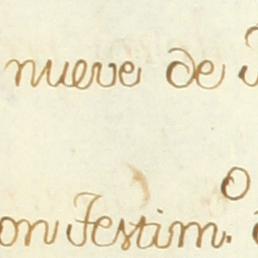 nueve de
on Testim.o